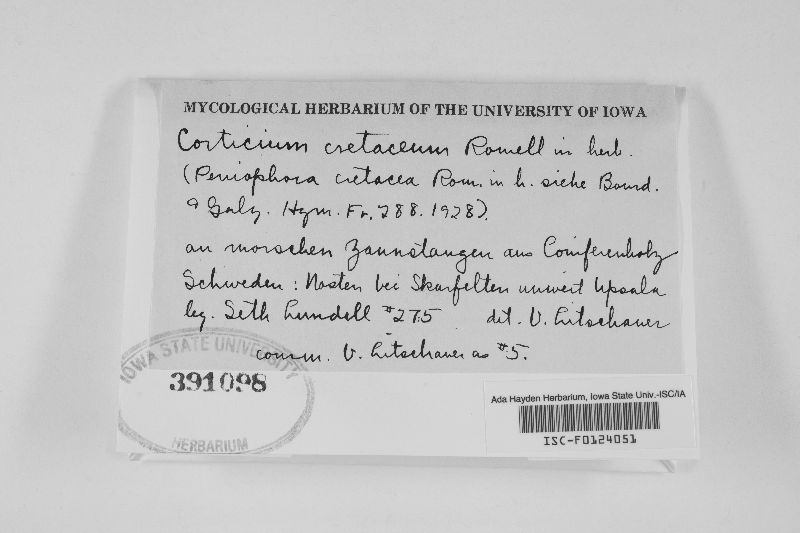 MYCOLOGICAL HERBARIUM OF THE UNIVERSITY OF IOWA
Corticium cretaceum Romell in herb.
(Peniophora cretacea Rom. in h. siehe Bourd.
& Galz. Hym. Fr. 288. 1928).
an morschen Zaunstangen aus Coniferenholz
Schweden: Nosten bei Skarfelten unweit Upsala
leg. Seth Lundell #275 det. V. Litschauer
comm. V. Litschauer as #5.
IOWA STATE UNIVERSITY
391098
HERBARIUM
Ada Hayden Herbarium, Iowa State Univ.-ISC/IA
ISC-F0124051